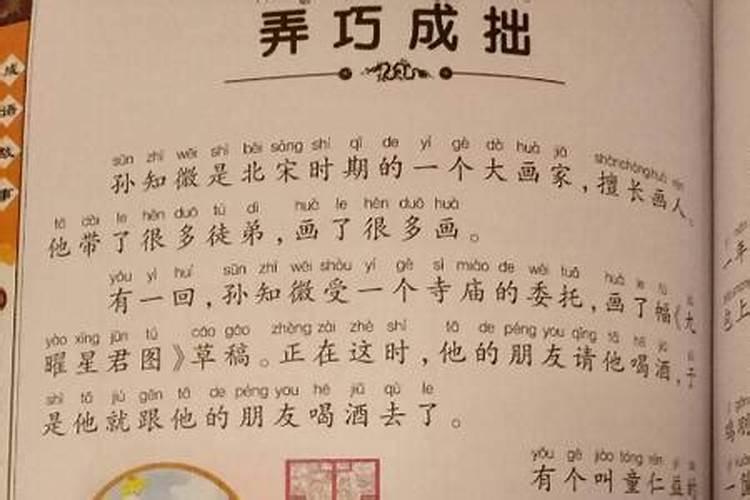 弄巧成拙
成语故事
sūn zhī wēi shì běi sòng shí qī de yí gè dà huà jiā shàn cháng huà rén
孙知微是北宋时期的一个大画家，擅长画人。
tā dài le hěn duō tú dì huà le hěn duō huà
他带了很多徒弟，画了很多画。
yǒu yì huí sūn zhī wēi shòu yí gè sì miào de wěi tuō huà le fú
有一回，孙知微受一个寺庙的委托，画了幅《九
yào xīng jūn tú cǎo gǎo zhèng zài zhè shí tā de péng you qǐng tā hē jiǔ
曜星君图》草稿。正在这时，他的朋友请他喝酒，于
shì tā jiù gēn tā de péng you hē jiǔ qù le
是他就跟他的朋友喝酒去了。
yǒu gè jiào tóng rén
有个叫童仁